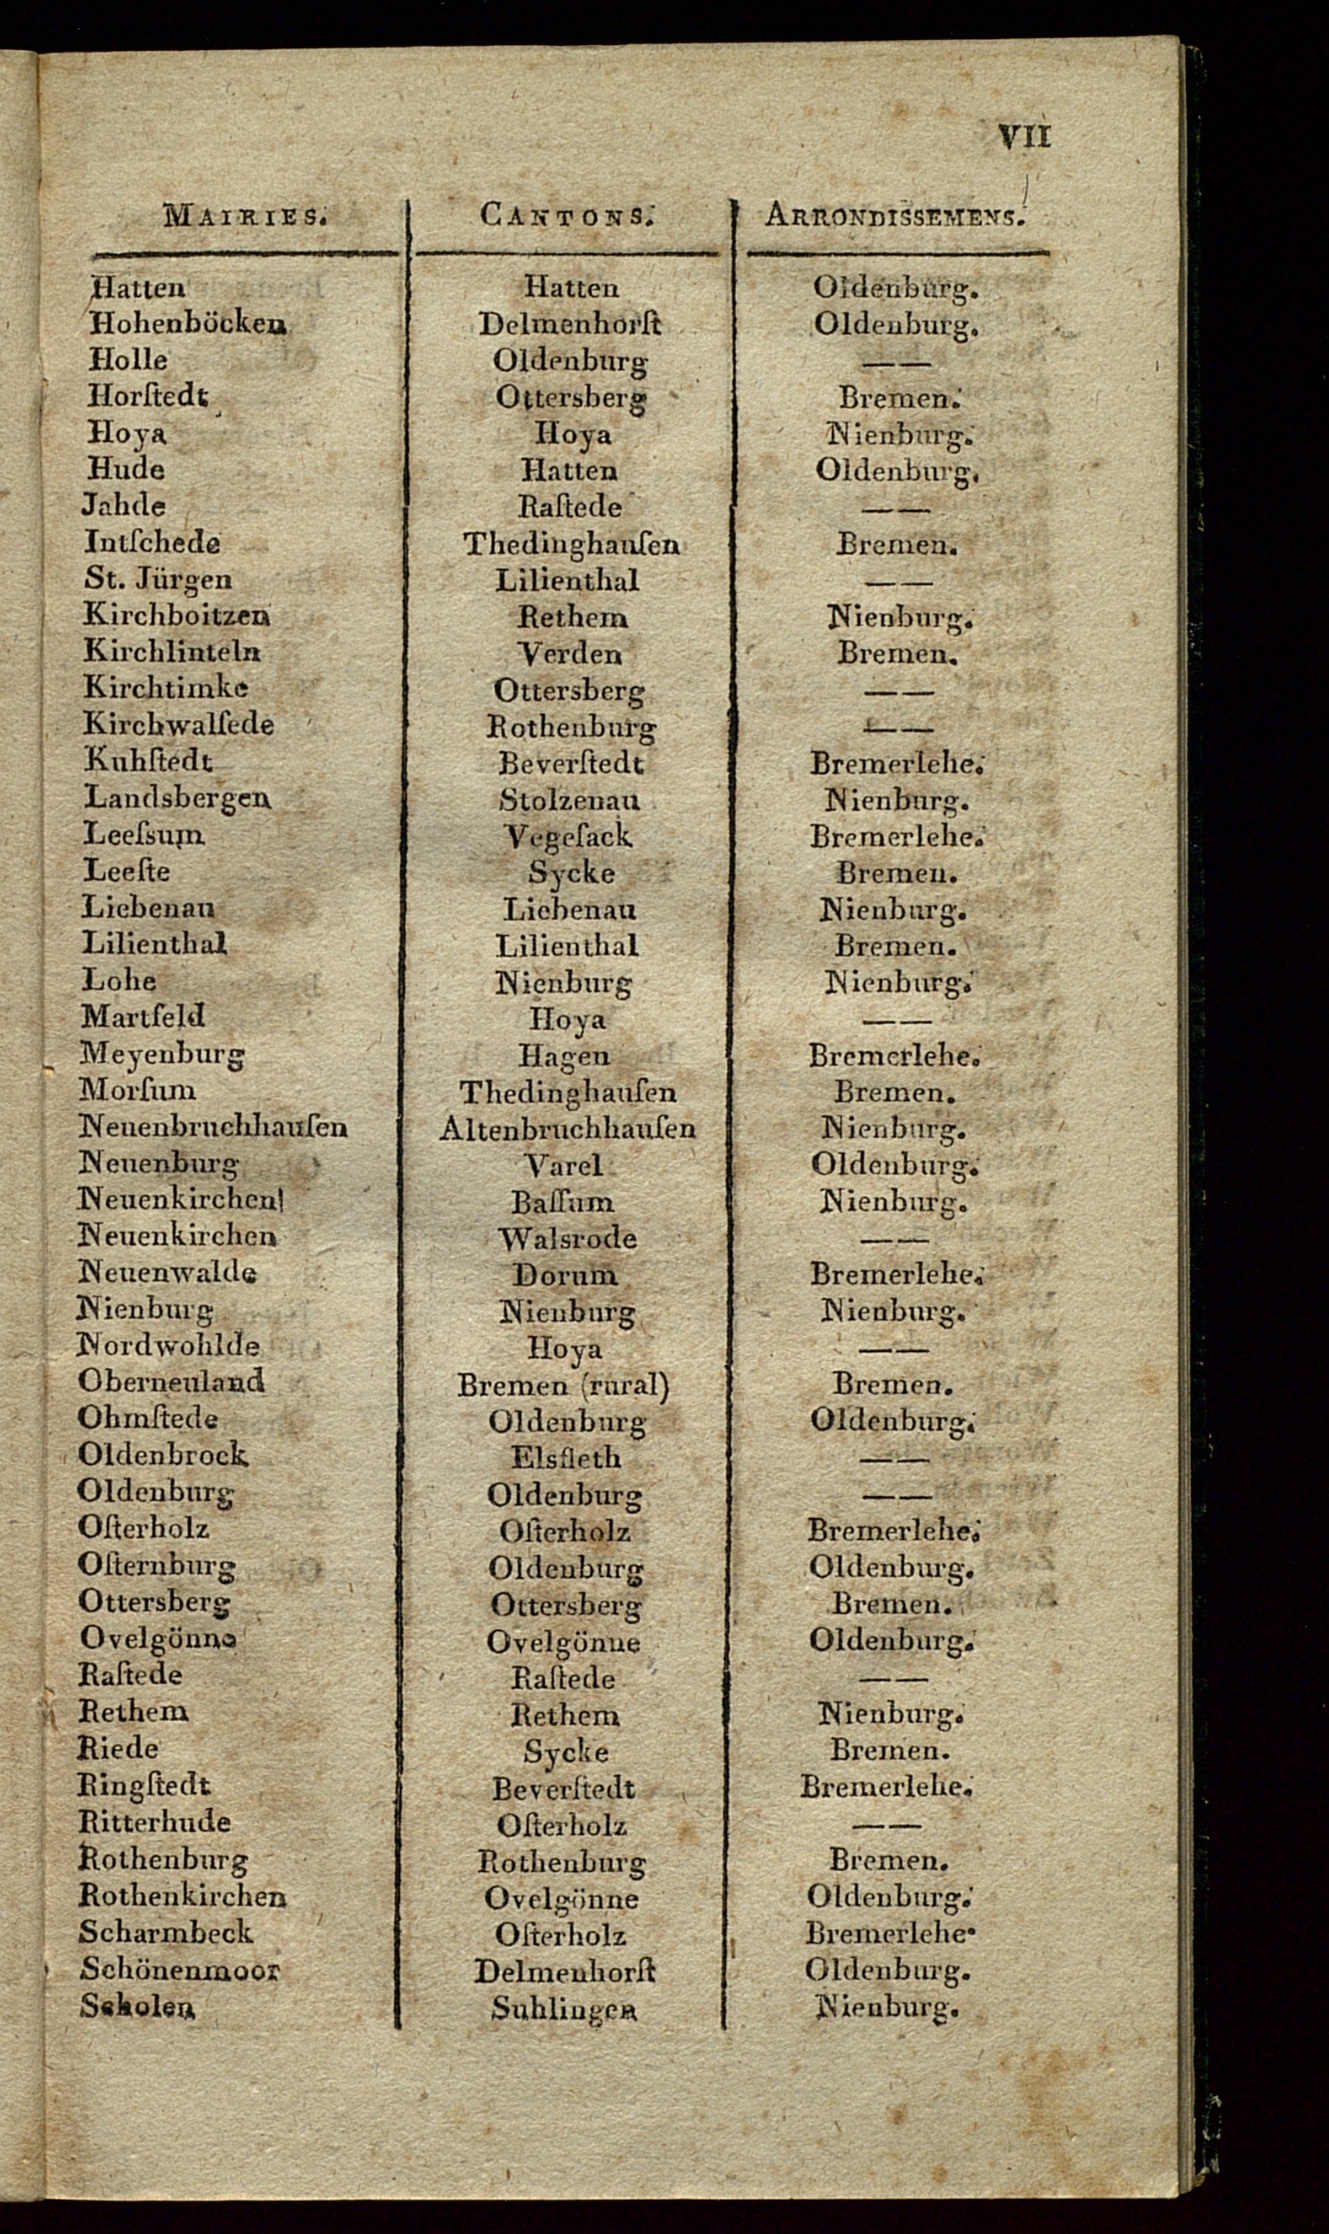 VII
MAIRIES. CANTONS. ARRONDISSEMENS.
Hatten Hatten Oldenburg.
Hohenböcken Delmenhorſt Oldenburg.
Holle Oldenburg ——
Horſtedt Ottersberg Bremen.
Hoya Hoya Nienburg.
Hude Hatten Oldenburg.
Jahde Raſtede ——
Intſchede Thedinghauſen Bremen.
St. Jürgen Lilienthal ——
Kirchboitzen Rethem Nienburg.
Kirchlinteln Verden Bremen.
Kirchtimke Ottersberg ——
Kirchwalſede Rothenburg ——
Kuhſtedt Beverſtedt Bremerlehe.
Landsbergen Stolzenau Nienburg.
Leeſsum Vegeſack Bremerlehe.
Leeſte Sycke Bremen.
Liebenau Liebenau Nienburg.
Lilienthal Lilienthal Bremen.
Lohe Nienburg Nienburg.
Martfeld Hoya ——
Meyenburg Hagen Bremerlehe.
Morſum Thedinghauſen Bremen.
Neuenbruchhauſen Altenbruchhauſen Nienburg.
Neuenburg Varel Oldenburg.
Neuenkirchen Baſſum Nienburg.
Neuenkirchen Walsrode ——
Neuenwalde Dorum Bremerlehe.
Nienburg Nienburg Nienburg.
Nordwohlde Hoya ——
Oberneuland Bremen (rural) Bremen.
Ohmſtede Oldenburg Oldenburg.
Oldenbrock Elsfleth ——
Oldenburg Oldenburg ——
Oſterholz Oſterholz Bremerlehe.
Oſternburg Oldenburg Oldenburg.
Ottersberg Ottersberg Bremen.
Ovelgönne Ovelgönne Oldenburg.
Raſtede Raſtede ——
Rethem Rethem Nienburg.
Riede Sycke Bremen.
Ringſtedt Beverſtedt Bremerlehe.
Ritterhude Oſterholz ——
Rothenburg Rothenburg Bremen.
Rothenkirchen Ovelgönne Oldenburg.
Scharmbeck Oſterholz Bremerlehe.
Schönenmoor Delmenhorſt Oldenburg.
Scholen Suhlingen Nienburg.